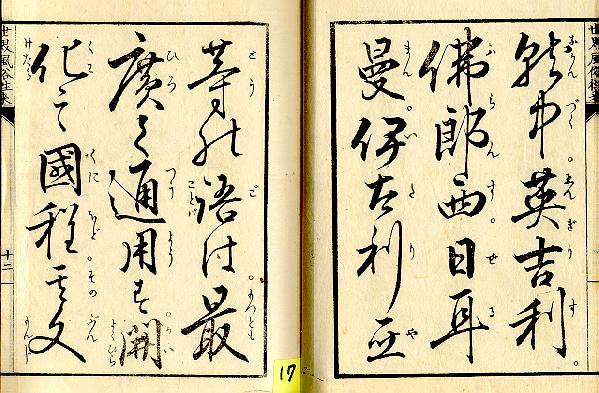 就中英吉利
佛郎西日耳
曼伊太利亜
等の語は最
廣く通用す開
化之國程其文
世界風俗往来
十二
17